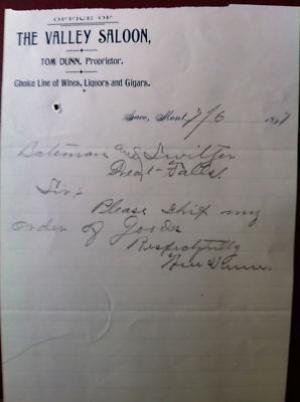 OFFICE OF
THE VALLEY SALOON,
TOM DUNN, Proprietor.
Choice Line of Wines, Liquors and Cigars.
Saco, Mont. 7/6 1897
Bateman and Switzer
Great Falls.
Sir:
Please Ship my
order of Goods
Respectfully
Dunn.